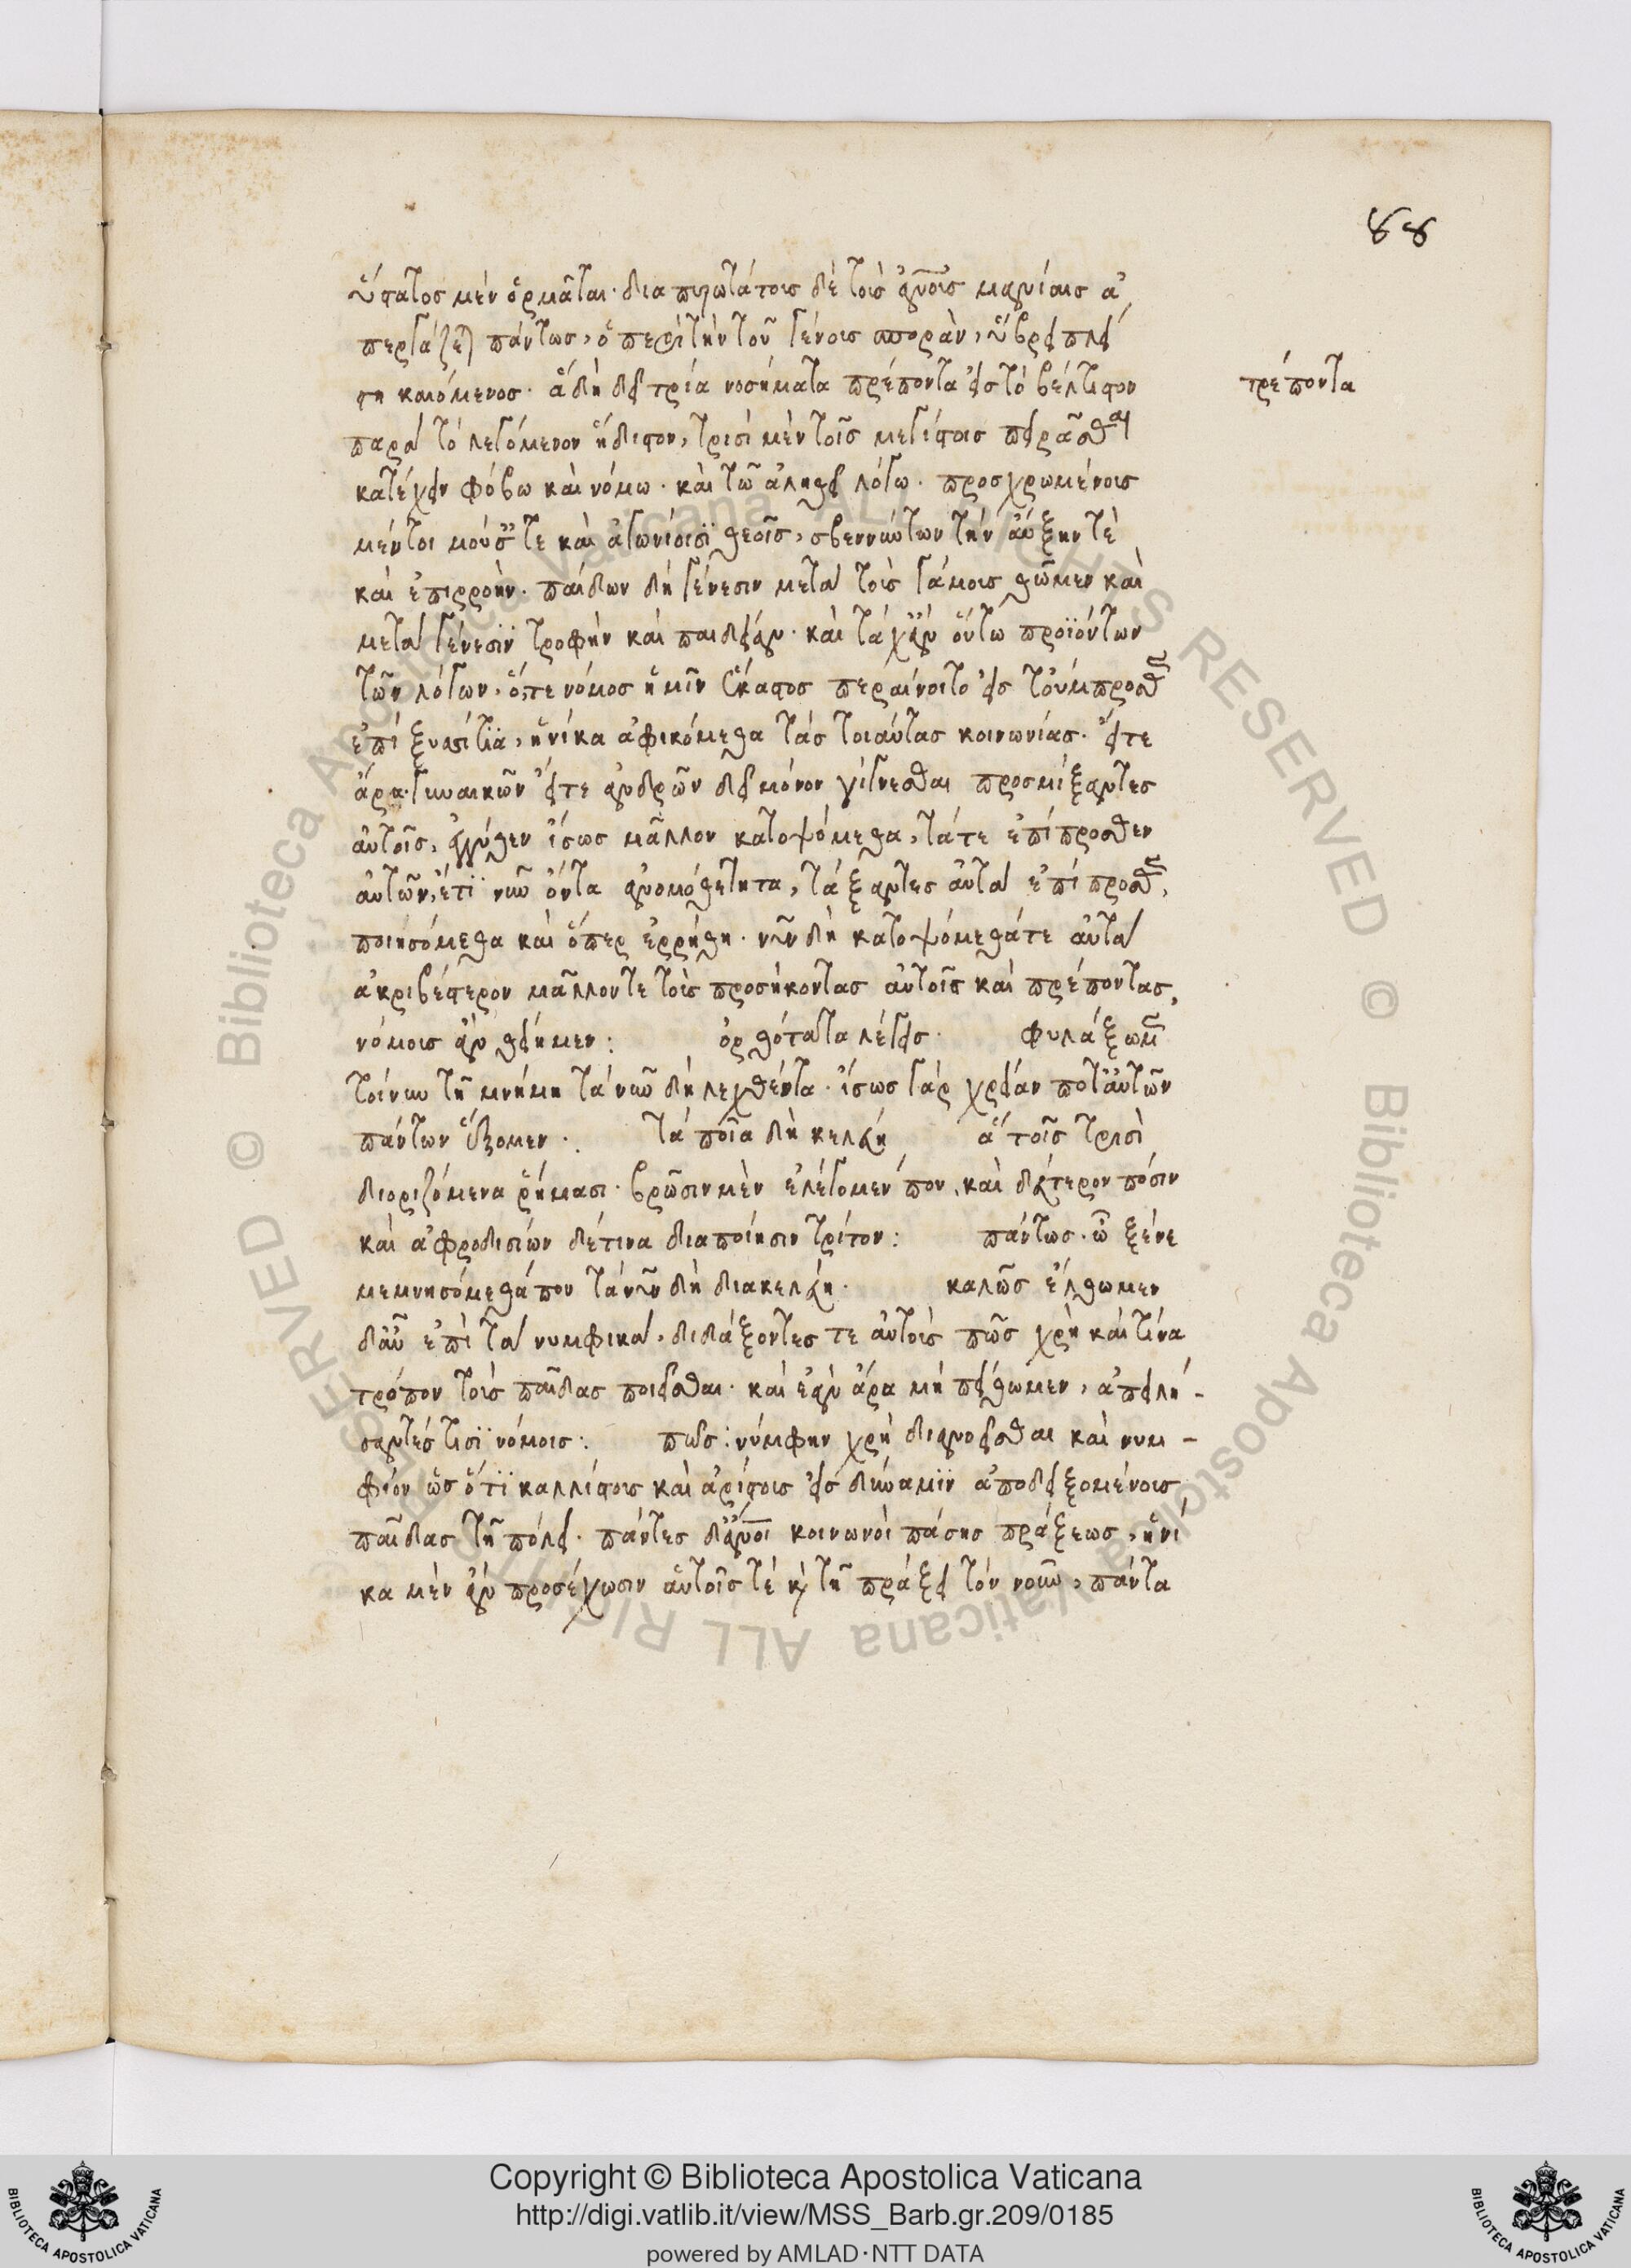 88
ὕστατος μὲν ὁρμᾶται· διαπυρωτάτους δὲ τοὺς ἀνους μανίαις ἀ
περγάζεται πάντως, ὁ περὶ τὴν τοῦ γένους σπορὰν, ὕβρει πλεί
στη καιόμενος· ἃ δὴ δεῖ τρία νοσήματα πρέποντα εἰς τὸ βέλτιστον
τρέποντα
παρὰ τὸ λεγόμενον ἥδιστον, τρισὶ μὲν τοῖς μεγίστοις πειρᾶσθαι
κατέχειν φόβω καὶ νόμω· καὶ τῶ ἀληθεῖ λόγω· προσχρωμένους
μέντοι μούσαις τε καὶ ἀγωνίοισι θεοῖς, σβεννύντων τὴν αὔξην τὲ
καὶ ἐπιρροὴν· παίδων δὴ γένεσιν μετὰ τοὺς γάμους θῶμεν καὶ
μετὰ γένεσιν τροφὴν καὶ παιδείαν· καὶ τάχ' ἂν οὕτω προϊόντων
τῶν λόγων, ὅ, τε νόμος ἡμῖν ἕκαστος περαίνοιτο εἰς τοὔμπροσθεν
ἐπὶ ξυσίτια, ἡνίκα ἀφικόμεθα τὰς τοιαύτας κοινωνίας· εἴτε
ἄρα γυναικῶν εἴτε ἀνδρῶν δεῖ μόνον γίγνεσθαι προσμίξαντες
αὐτοῖς, ἐγγύθεν ἴσως μᾶλλον κατοψόμεθα, τά τε ἐπίπροσθεν
αὐτῶν, ἔτι νῦν ὄντα ἀνομοθέτητα, τάξαντες αὐτὰ ἐπίπροσθεν,
ποιησόμεθα καὶ ὅπερ ἐρρήθη· νῦν δὴ κατοψόμεθά τε αὐτὰ
ἀκριβέστερον μᾶλλον τε τοὺς προσήκοντας αὐτοῖς καὶ πρέποντας,
νόμους ἂν θείημεν: ὀρθότατα λέγεις· φυλάξωμεν
τοίνυν τῆ μνήμη τὰ νῦν δὴ λεχθέντα· ἴσως γὰρ χρείαν ποτ' αὐτῶν
πάντων ἕξομεν: τὰ ποῖα δὴ κελεύη ἃ τοῖς τρισὶ
διοριζόμενα ῥήμασι· βρῶσιν μὲν ἐλέγομέν που, καὶ δεύτερον πόσιν
καὶ ἀφροδισίων δέ τινα διαποίησιν τρίτον: πάντως· ὦ ξένε
μεμνησόμεθά που τὰ νῦν δὴ διακελεύη· καλῶς ἔλθωμεν
δ' αὖ ἐπὶ τὰ νυμφικὰ, διδάξοντες τε αὐτοὺς πῶς χρὴ καὶ τίνα
τρόπον τοὺς παῖδας ποιεῖσθαι· καὶ ἐὰν ἄρα μὴ πείθωμεν, ἀπειλή-
σαντές τισι νόμοις: πῶς: νύμφην χρὴ διανοεῖσθαι καὶ νυμ-
φίον ὡς ὅτι καλλίστους καὶ ἀρίστους εἰς δύναμιν ἀποδειξομένους,
παῖδας τῆ πόλει· πάντες δ' ἄνοι κοινωνοὶ πάσης πράξεως, ἡνί
κα μὲν ἂν προσέχωσιν αὑτοῖς τὲ καὶ τῆ πράξει τὸν νοῦν, πάντα
Copyright © Biblioteca Apostolica Vaticana
http://digi.vatlib.it/view/MSS_Barb.gr.209/0185
powered by AMLAD·NTT DATA